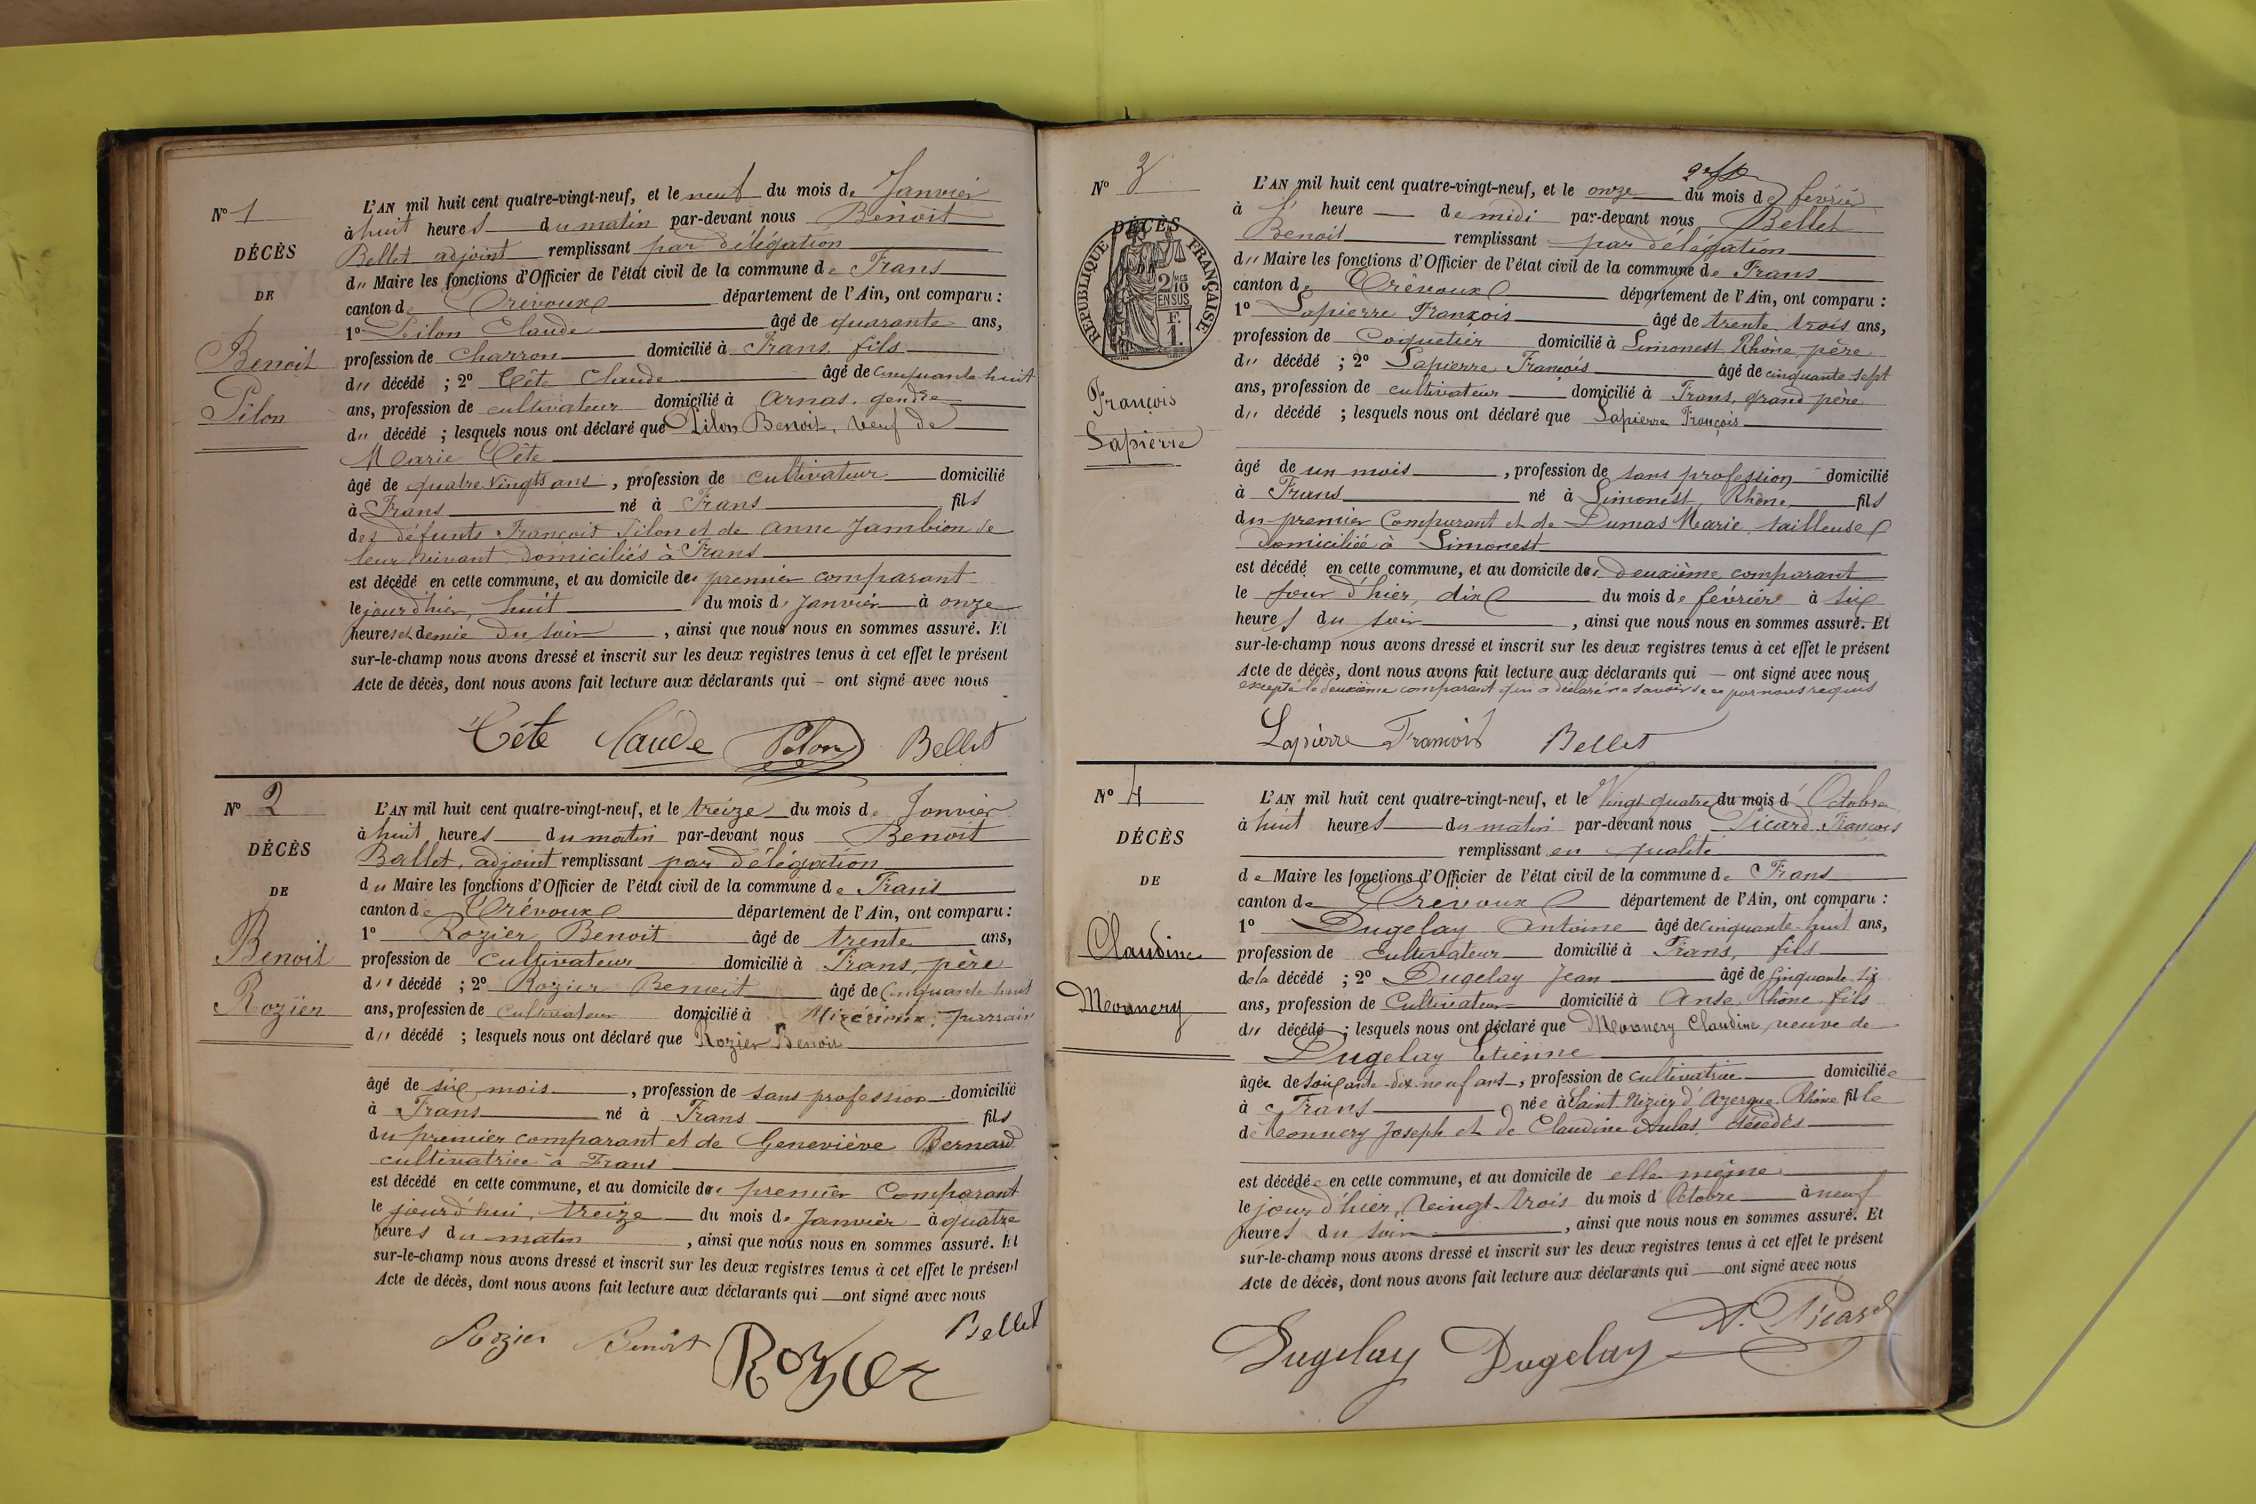 N° 1
DÉCÈS
DE
Benoit
Pilon
L'AN mil huit cent quatre-vingt-neuf, et le neuf du mois de Janvier
à huit heures du matin par-devant nous Benoit
Bellet adjoint remplissant par délégation
du Maire les fonctions d'Officier de l'état civil de la commune de Frans
canton de Trévoux département de l'Ain, ont comparu :
1° Pilon Claude âgé de quarante ans,
profession de charron domicilié à Frans, fils
du décédé ; 2° Tête Claude âgé de cinquante huit
ans, profession de cultivateur domicilié à Arnas, gendre
du décédé ; lesquels nous ont déclaré que Pilon Benoit, veuf de
Marie Tête
âgé de quatre vingts ans, profession de cultivateur domicilié
à Frans né à Frans fils
des défunts François Pilon et de Anne Jambion de
leur vivant domiciliés à Frans
est décédé en cette commune, et au domicile du premier comparant
le jour d'hier, huit du mois de Janvier à onze
heures et demie du soir, ainsi que nous nous en sommes assuré. Et
sur-le-champ nous avons dressé et inscrit sur les deux registres tenus à cet effet le présent
Acte de décès, dont nous avons fait lecture aux déclarants qui — ont signé avec nous
Tête Claude Pilon Bellet
N° 2
DÉCÈS
DE
Benoit
Rozier
L'AN mil huit cent quatre-vingt-neuf, et le treize du mois de Janvier
à huit heures du matin par-devant nous Benoit
Bellet, adjoint remplissant par délégation
du Maire les fonctions d'Officier de l'état civil de la commune de Frans
canton de Trévoux département de l'Ain, ont comparu :
1° Rozier Benoit âgé de trente ans,
profession de cultivateur domicilié à Frans, père
du décédé ; 2° Rozier Benoit âgé de cinquante huit
ans, profession de cultivateur domicilié à Mizérieux, parrain
du décédé ; lesquels nous ont déclaré que Rozier Benoit
âgé de six mois, profession de sans profession domicilié
à Frans né à Frans fils
du premier comparant et de Geneviève Bernard
cultivatrice à Frans
est décédé en cette commune, et au domicile du premier comparant
le jourd'hui, treize du mois de Janvier à quatre
heures du matin, ainsi que nous nous en sommes assuré. Et
sur-le-champ nous avons dressé et inscrit sur les deux registres tenus à cet effet le présent
Acte de décès, dont nous avons fait lecture aux déclarants qui — ont signé avec nous
Rozier Benoit Rozier Bellet
N° 3
DÉCÈS
DE
RÉPUBLIQUE FRANÇAISE
2/10 MES
EN SUS
F.
1.
François
Lapierre
L'AN mil huit cent quatre-vingt-neuf, et le onze du mois de février
à 1 heure de midi par-devant nous Bellet
Benoit remplissant par délégation
du Maire les fonctions d'Officier de l'état civil de la commune de Frans
canton de Trévoux département de l'Ain, ont comparu :
1° Lapierre François âgé de trente trois ans,
profession de coquetier domicilié à Limonest Rhône, père
du décédé ; 2° Lapierre François âgé de cinquante sept
ans, profession de cultivateur domicilié à Frans, grand père
du décédé ; lesquels nous ont déclaré que Lapierre François
âgé de un mois, profession de sans profession domicilié
à Frans né à Limonest, Rhône, fils
du premier comparant et de Dumas Marie, tailleuse
domiciliée à Limonest
est décédé en cette commune, et au domicile du deuxième comparant
le jour d'hier, dix du mois de février à six
heures du soir, ainsi que nous nous en sommes assuré. Et
sur-le-champ nous avons dressé et inscrit sur les deux registres tenus à cet effet le présent
Acte de décès, dont nous avons fait lecture aux déclarants qui — ont signé avec nous
excepté le deuxième comparant qui a déclaré ne savoir de ce par nous requis
Lapierre François Bellet
N° 4
DÉCÈS
DE
Claudine
Monnery
L'AN mil huit cent quatre-vingt-neuf, et le vingt quatre du mois d'Octobre
à huit heures du matin par-devant nous Picard François
remplissant en qualité
de Maire les fonctions d'Officier de l'état civil de la commune de Frans
canton de Trévoux département de l'Ain, ont comparu :
1° Dugelay Antoine âgé de cinquante-huit ans,
profession de Cultivateur domicilié à Frans, fils
de la décédé ; 2° Dugelay Jean âgé de Cinquante six
ans, profession de Cultivateur domicilié à Anse Rhône fils
du décédé ; lesquels nous ont déclaré que Monnery Claudine veuve de
Dugelay Etienne
âgée de soixante-dix-neuf ans, profession de cultivatrice domiciliée
à Frans née à Saint Nizier d'Azergue Rhône fille
de Monnery Joseph et de Claudine Aulas décédés
est décédée en cette commune, et au domicile de elle même
le jour d'hier, vingt-trois du mois d'Octobre à neuf
heures du soir, ainsi que nous nous en sommes assuré. Et
sur-le-champ nous avons dressé et inscrit sur les deux registres tenus à cet effet le présent
Acte de décès, dont nous avons fait lecture aux déclarants qui — ont signé avec nous
Dugelay Dugelay Picard